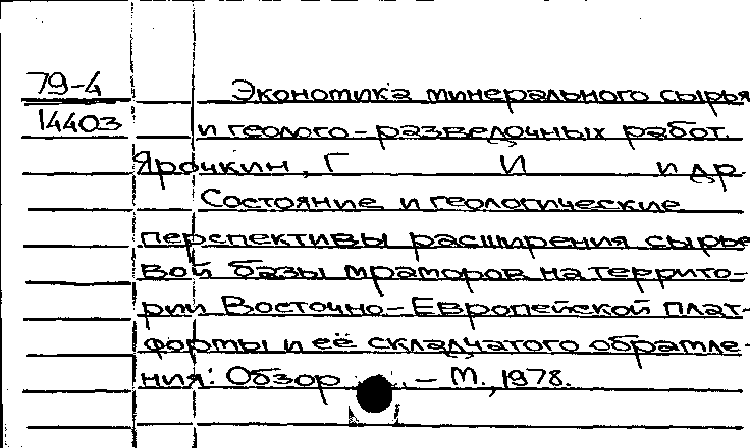 79-4
14403
Экономика минерального сырья
и геолого-разведочных работ.
Ярочкин, Г И и др
Состояние и геологические
перспективы расширения сырье
вой базы мраморов на террито-
рии Восточно-Европейской плат-
формы и её складчатого обрамле-
ния: Обзор. - М., 1978.